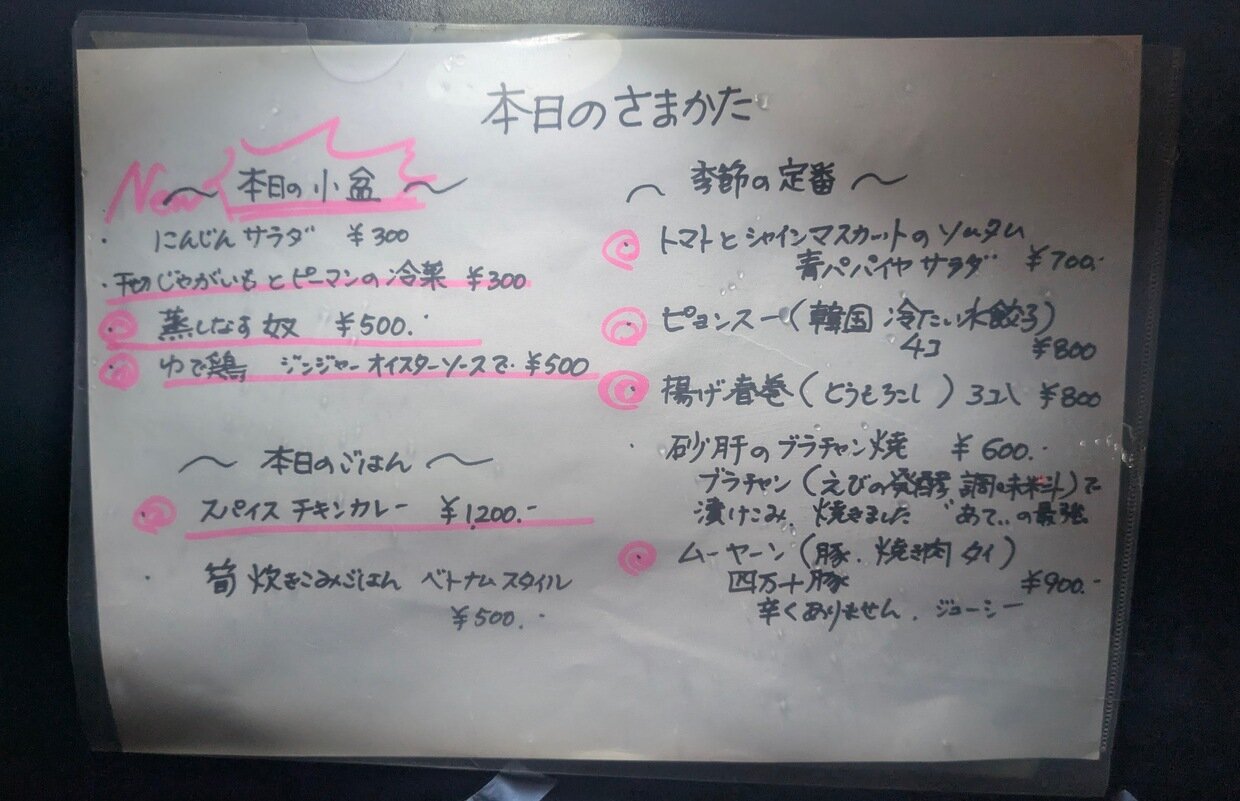 本日のさまかた
New 〜 本日の小盆 〜
・ にんじんサラダ ¥300
・千切じゃがいもとピーマンの冷菜 ¥300
蒸しなす奴 ¥500.-
ゆで鶏 ジンジャーオイスターソースで ¥500
〜 本日のごはん 〜
スパイスチキンカレー ¥1,200.-
・ 筍炊きこみごはん ベトナムスタイル
¥500.-
〜 季節の定番 〜
トマトとシャインマスカットのソムタム
青パパイヤサラダ ¥700.-
ピョンスー(韓国 冷たい水餃子)
4コ ¥800
揚げ春巻(とうもろこし) 3コ入 ¥800
・ 砂肝のブラチャン焼 ¥600.-
ブラチャン(えびの発酵調味料)で
漬けこみ、焼きました “あて”の最強
ムーヤーン(豚・焼き肉 タイ)
四万十豚 ¥900.-
辛くありません. ジューシー